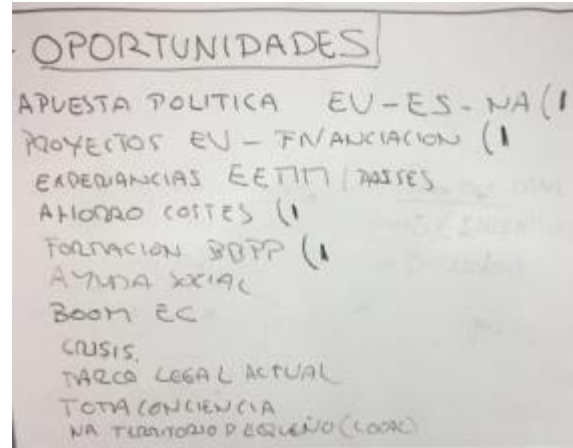 - OPORTUNIDADES
APUESTA POLITICA EU-ES-NA (1
PROYECTOS EU - FINANCIACION (1
EXPERIANCIAS EETTM / PAISES
AHORRO COSTES (1
FORMACION BBPP (1
AYUDA SOCIAL
BOOM EC
CRISIS.
MARCO LEGAL ACTUAL
TOMA CONCIENCIA
NA TERRITORIO PEQUEÑO (LOCAL)